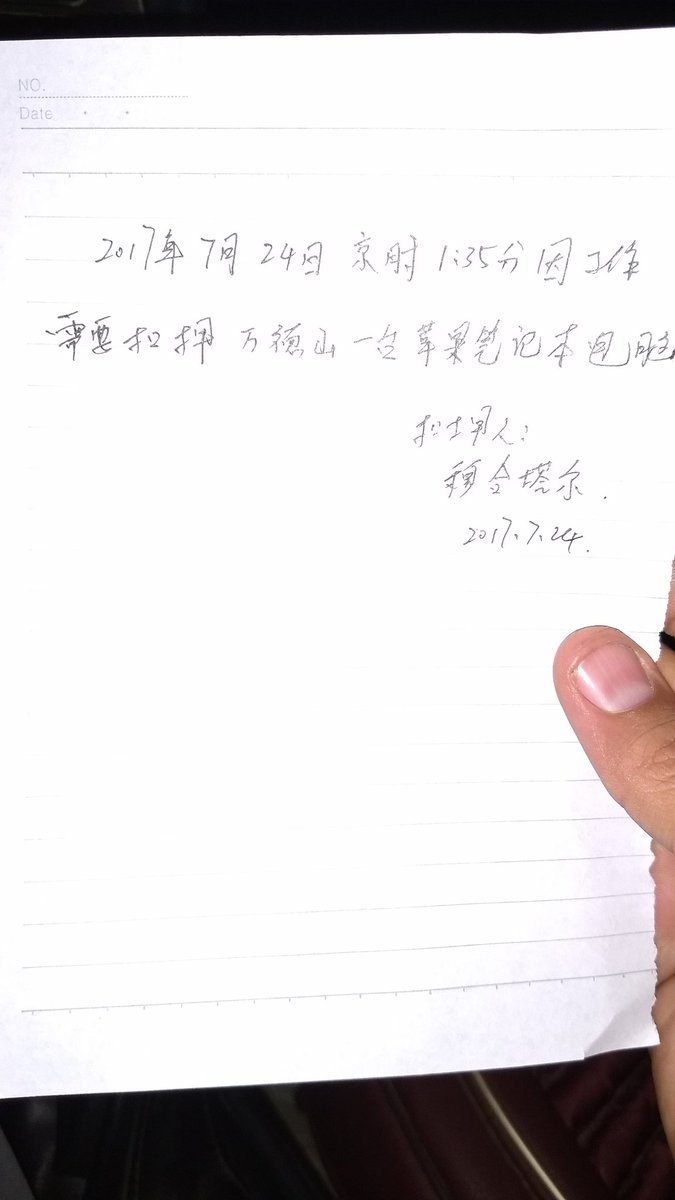 NO.
Date
2017年7月24日京时1:35分因工作
需要扣押万德山一台苹果笔记本电脑
扣押人:
穆合塔尔.
2017.7.24.